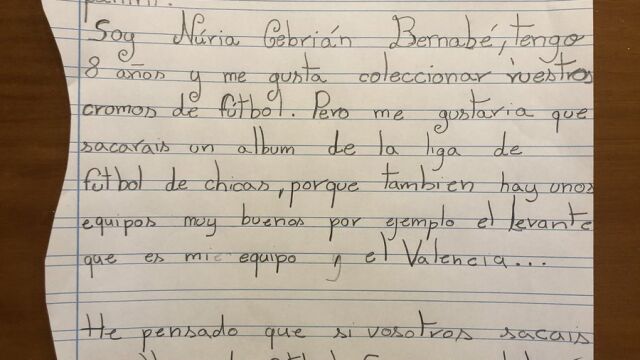 Soy Núria Cebrián Bernabé, tengo
8 años y me gusta coleccionar vuestros
cromos de fútbol. Pero me gustaria que
sacarais un album de la liga de
fútbol de chicas, porque tambien hay unos
equipos muy buenos por ejemplo el levante
que es mi equipo y el Valencia...
He pensado que si vosotros sacais